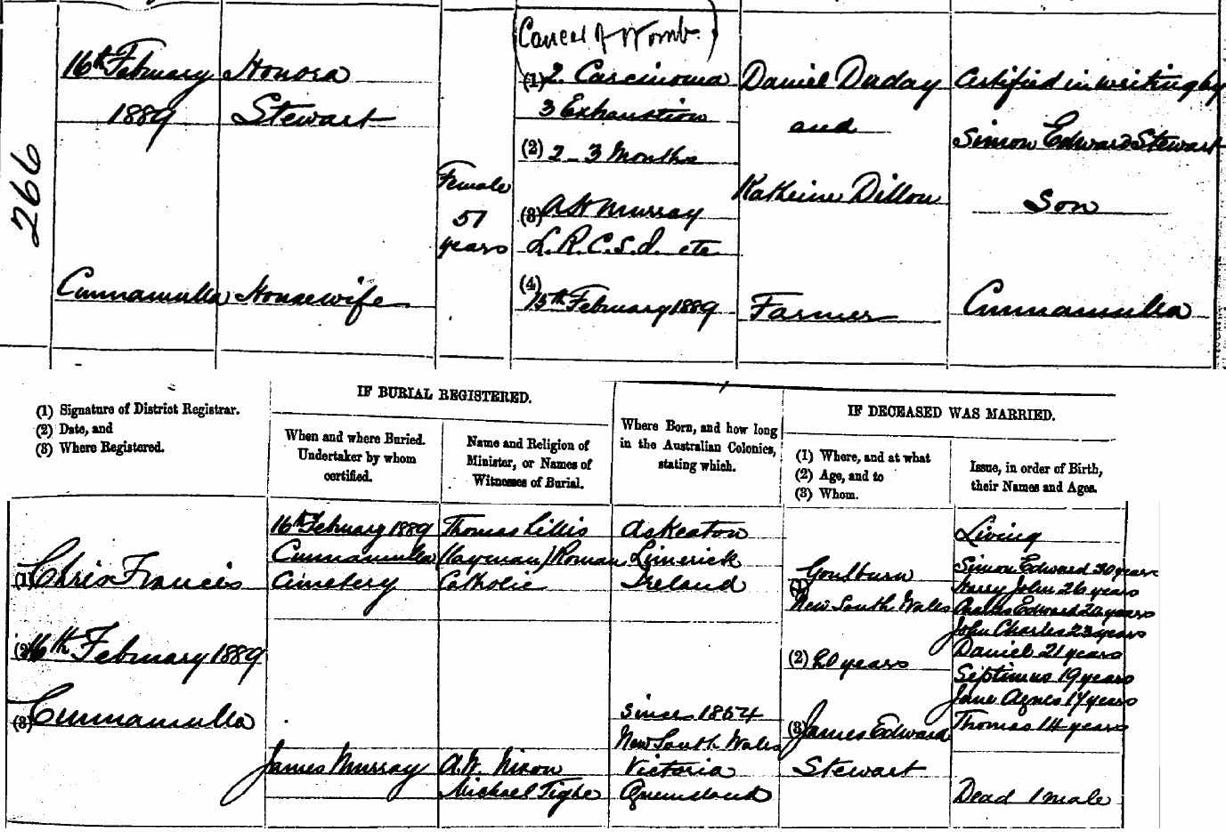 266
16th February
1889
Cunnamulla
Honora
Stewart
Housewife
Female
51
years
(Cancer of Womb)
(1) 2. Carcinoma
3 Exhaustion
(2) 2-3 Months
(3) A H Murray
L.R.C.S.I. etc
(4)
15th February 1889
Daniel Duday
and
Katherine Dillon
Farmer
Certified in writing by
Simon Edward Stewart
Son
Cunnamulla
(1) Signature of District Registrar.
(2) Date, and
(3) Where Registered.
IF BURIAL REGISTERED.
When and where Buried.
Undertaker by whom
certified.
Name and Religion of
Minister, or Names of
Witnesses of Burial.
Where Born, and how long
in the Australian Colonies,
stating which.
IF DECEASED WAS MARRIED.
(1) Where, and at what
(2) Age, and to
(3) Whom.
Issue, in order of Birth,
their Names and Ages.
(1) Chris Francis
(2) 16th February 1889
(3) Cunnamulla
16th February 1889
Cunnamulla
Cimetery
James Murray
Thomas Lillis
(layman) Roman
Catholic
A.W. Nixon
Michael Tighe
Askeaton
Limerick
Ireland
since 1854
New South Wales
Victoria
Queensland
Goulburn
(1)
New South Wales
(2) 20 years
(3) James Edward
Stewart
Living
Simon Edward 30 years
Harry John 26 years
Edward 24 years
John Charles 23 years
Daniel 21 years
Septimus 19 years
Jane Agnes 17 years
Thomas 14 years
Dead 1 male